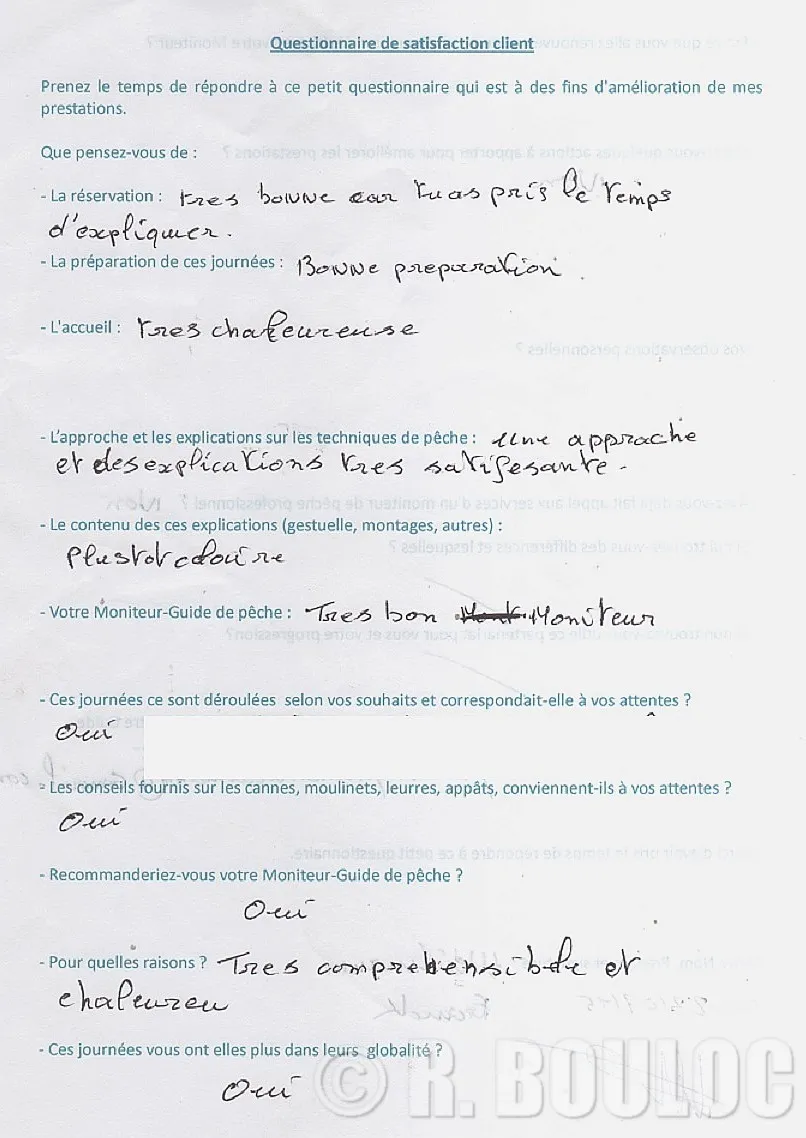 Questionnaire de satisfaction client
Prenez le temps de répondre à ce petit questionnaire qui est à des fins d'amélioration de mes
prestations.
Que pensez-vous de :
- La réservation : tres bonne car tu as pris le temps
d'expliquer.
- La préparation de ces journées : Bonne preparation.
- L'accueil : tres chaleureuse
- L'approche et les explications sur les techniques de pêche : une approche
et des explications tres satifesante.
- Le contenu des ces explications (gestuelle, montages, autres) :
Plustot claire
- Votre Moniteur-Guide de pêche : Tres bon Moniteur
- Ces journées ce sont déroulées selon vos souhaits et correspondait-elle à vos attentes ?
Oui
- Les conseils fournis sur les cannes, moulinets, leurres, appâts, conviennent-ils à vos attentes ?
Oui
- Recommanderiez-vous votre Moniteur-Guide de pêche ?
Oui
- Pour quelles raisons ? Tres comprehensible et
chaleureu
- Ces journées vous ont elles plus dans leurs globalité ?
Oui
© R. BOULOC